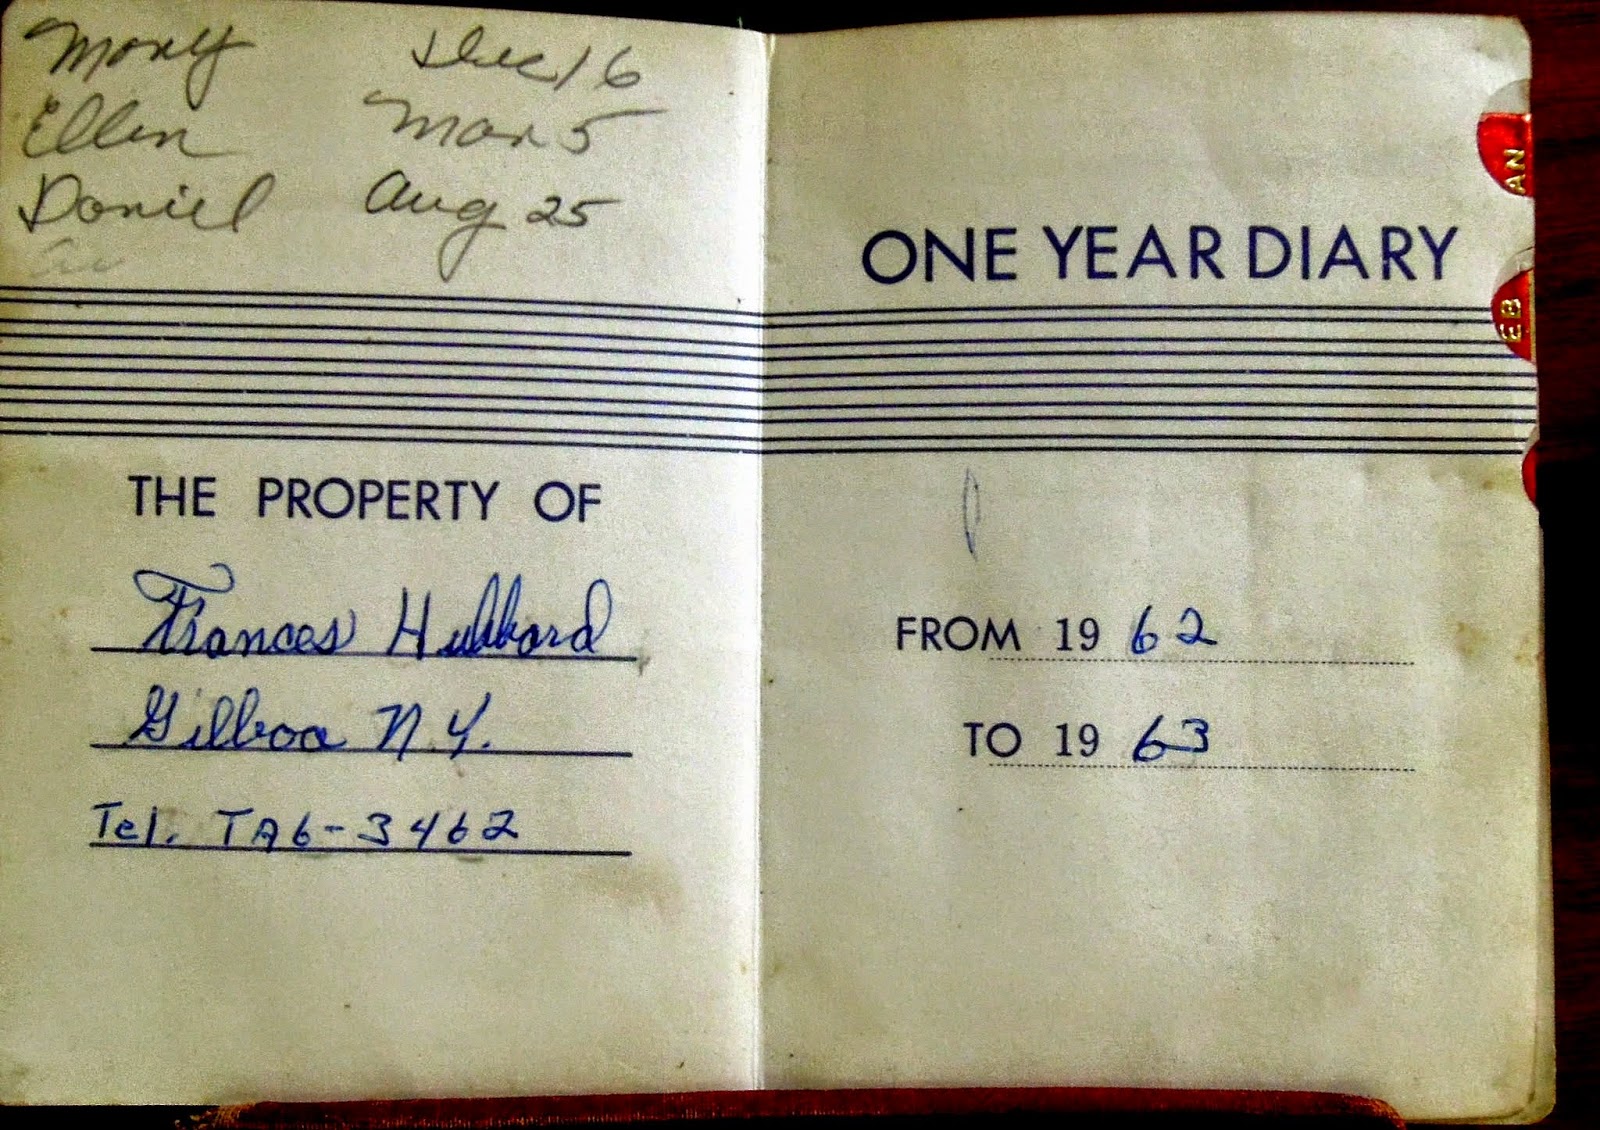 Mary Dec 16
Ellen Mar 5
Daniel Aug 25
THE PROPERTY OF
Frances Hubbard
Gilboa N.Y.
Tel. TA6-3462
ONE YEAR DIARY
FROM 1962
TO 1963
AN
EB